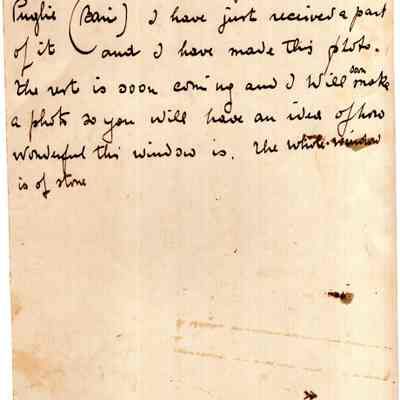 Puglie (Bari) I have just received a part
of it and I have made this photo.
The rest is soon coming and I will soon make
a photo so you will have an idea of how
wonderful this window is. The whole window
is of stone